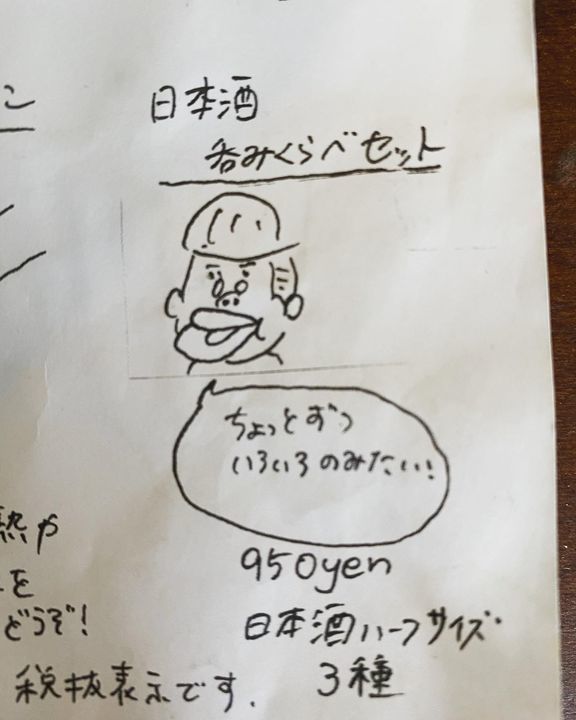 日本酒
呑みくらべセット
ちょっとずつ
いろいろのみたい!
950yen
日本酒ハーフサイズ
3種
熱や
を
どうぞ!
税抜表示です.